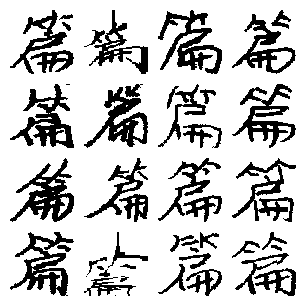 篇篇篇篇
篇篇篇篇
篇篇篇篇
篇篇篇篇